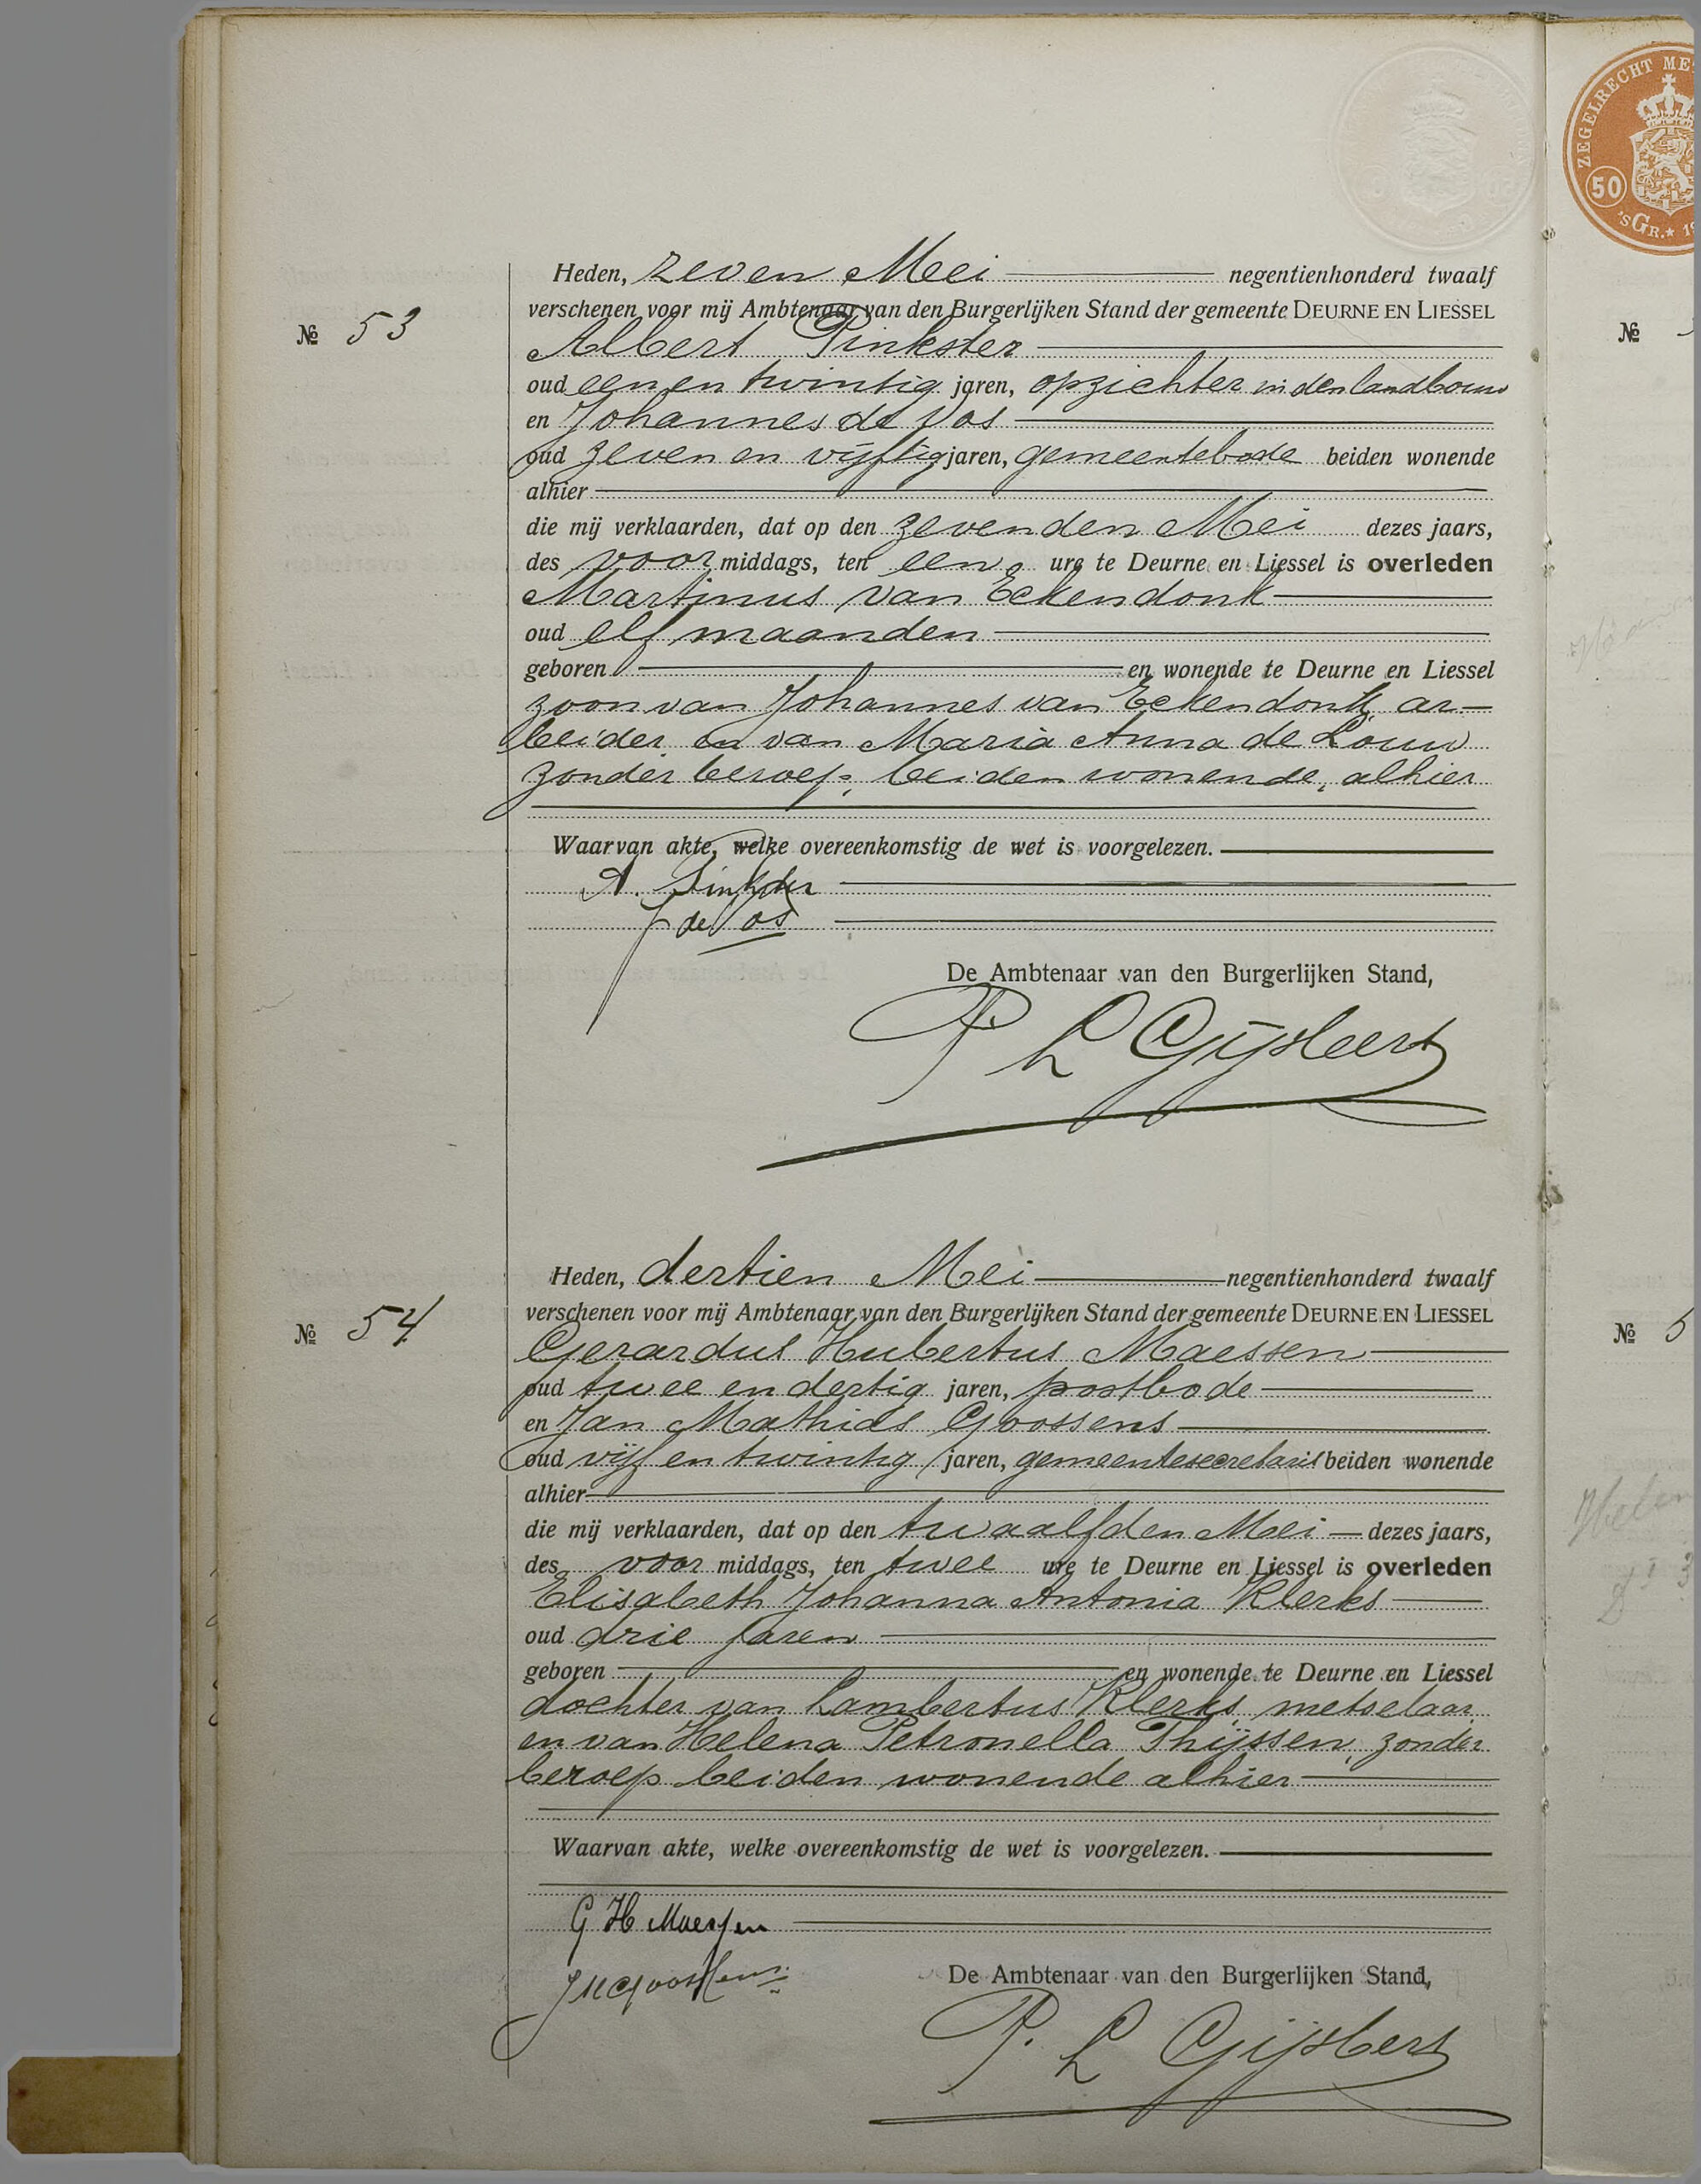 ZEGELRECHT ME
50
'SGR.★ 19
Heden, zeven Mei negentienhonderd twaalf
verschenen voor mij Ambtenaar van den Burgerlijken Stand der gemeente DEURNE EN LIESSEL
№ 53
№
Albert Pinkster
oud een en twintig jaren, opzichter in den landbouw
en Johannes de Vos
oud zeven en vijftig jaren, gemeentebode beiden wonende
alhier
die mij verklaarden, dat op den zevenden Mei dezes jaars,
des voor middags, ten een ure te Deurne en Liessel is overleden
Martinus van Eckendonk
oud elf maanden
geboren en wonende te Deurne en Liessel
zoon van Johannes van Eckendonk, ar-
beider en van Maria Anna de Louw
zonder beroep, beiden wonende, alhier
Waarvan akte, welke overeenkomstig de wet is voorgelezen.
A. Pinkster
J de Vos
De Ambtenaar van den Burgerlijken Stand,
P L Gijsbers
Heden, dertien Mei negentienhonderd twaalf
verschenen voor mij Ambtenaar van den Burgerlijken Stand der gemeente DEURNE EN LIESSEL
№ 54
№ 5
Gerardus Hubertus Maessen
oud twee en dertig jaren, postbode
en Jan Mathias Goossens
oud vijf en twintig jaren, gemeentesecretaris beiden wonende
alhier
die mij verklaarden, dat op den twaalfden Mei dezes jaars,
des voor middags, ten twee ure te Deurne en Liessel is overleden
Elisabeth Johanna Antonia Klerks
oud drie jaren
geboren en wonende te Deurne en Liessel
dochter van Lambertus Klerks, metselaar
en van Helena Petronella Thijssen, zonder
beroep beiden wonende alhier
Waarvan akte, welke overeenkomstig de wet is voorgelezen.
G H Maessen
J M Goossens
De Ambtenaar van den Burgerlijken Stand,
P. L Gijsbers